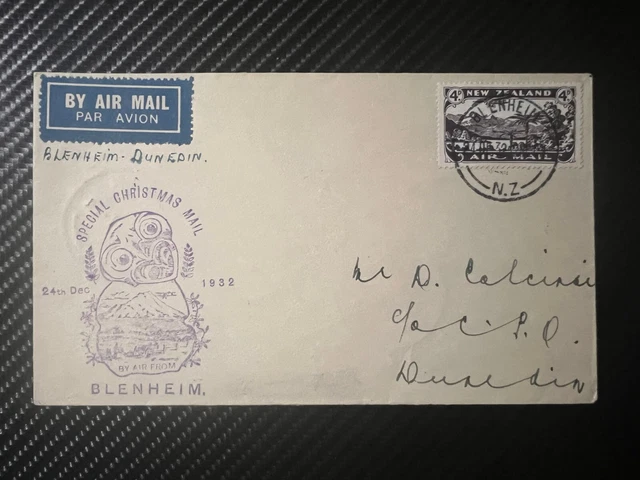 BY AIR MAIL
PAR AVION
BLENHEIM - DUNEDIN.
4D NEW ZEALAND 4D
AIR MAIL
BLENHEIM
N.Z
SPECIAL CHRISTMAS MAIL
24TH DEC 1932
BY AIR FROM
BLENHEIM.
Mr D.
c/o C.P.O.
Dunedin